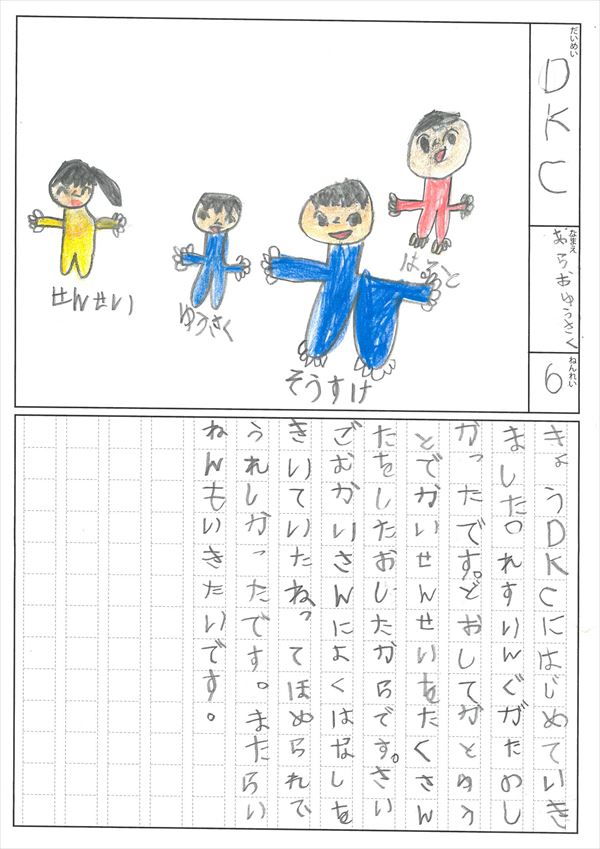 だいめい
DKC
なまえ
あらおゆうさく
ねんれい
6
せんせい
ゆうさく
そうすけ
はると
きょうDKCにはじめていき
ました。れすりんぐがたのし
かったです。どおしてかとゆう
とでかいせんせいをたくさん
たをしたおしたからです。さい
ごむかいさんによくはなしを
きいていたねってほめられて
うれしかったです。またらい
ねんもいきたいです。